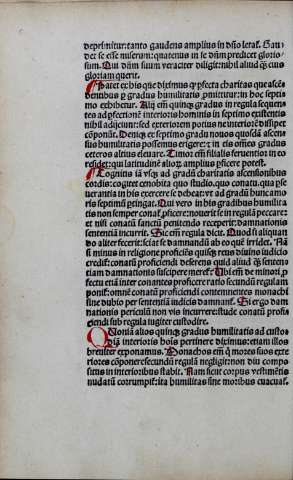 deprimitur: tanto gaudens amplius in dño letaƒ. Gau
det se esse miserum: quatenus in se dñm predicet glorio
sum. Qui dñm suum veraciter diligit: nihil aliud q̃ eius
gloriam querit.
Patet ex his que diximus ꝙ pfecta charitas que ascẽ
dentibus p gradus humilitatis pmittitur: in hoc septi
mo exhibetur. Alij em̃ quinqꝫ gradus in regula sequen
tes ad pfectionẽ interioris hominis in septimo existentis
nihil adijciunt: sed exteriorem potius ne interior dissipet
cõponãt. Deniqꝫ ex septimo gradu nouos quosdã ascen
sus humilitatis possemus erigere: et in eis
ceteros altius eleuare. Timor em̃ filialis seruientior in eo
residet: qui latitudinẽ aliaqꝫ amplius pficere potest.
Cognita iã vsqꝫ ad gradũ charitatis ascensionibus
cordis: cogitet emobita quo studio. quo conatu. qua pse
uerantia in his exercere se debeat: vt ad gradũ hunc amo
ris septimũ ptingat. Qui vero in his gradibus humilita
tis non semper conaƒ pficere: nouerit se in regulã peccare:
et nisi conatũ sanctũ penitendo receperit: damnationis
sententiã incurrit. Sic em̃ regula dicit. Quod si aliquan
do aliter fecerit: sciat se damnandũ ab eo quẽ irridet. Nã
si minus in religione proficiẽs quisqꝫ reus diuino iudicio
credit: conatũ proficiendi deserens quid aliud q̃ senten
tiam damnationis suscipere mereƒ: Ubi em̃ de minori p
fectu etiã inter conantes proficere ratio secundũ regulam
poniƒ: omnẽ conatũ proficiendi contemnentes monachi
sine dubio per sententiã iudicis damnanƒ. Si ergo dam
nationis periculũ non vis incurrere: stude conatũ profi
ciendi sub regula iugiter custodire.
Quoniã alios quinqꝫ gradus humilitatis ad custo
diã interioris hoĩs pertinere diximus: etiam illos
breuiter exponamus. Monachos em̃ q̃ mores suos exte
riores cõponere secundũ regulã negligit: non diu compo
situs in interioribus stabit. Nam sicut corpus vestimẽtis
nudatũ corrumpiƒ: ita humilitas sine moribus euacuaƒ.